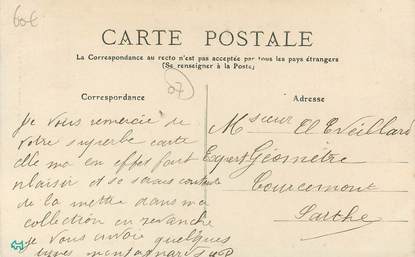 60€
CARTE POSTALE
La Correspondance au recto n'est pas acceptée par tous les pays étrangers
(Se renseigner à la Poste)
07
Correspondance
Je vous remercie de
votre superbe carte
elle ma en effet fait
plaisir et je serais contente
de la mettre dans ma
collection en revanche
je vous envoie quelques
types montagnards
Adresse
Msieur El Eveillard
Expert Géomètre
Courcemont
Sarthe